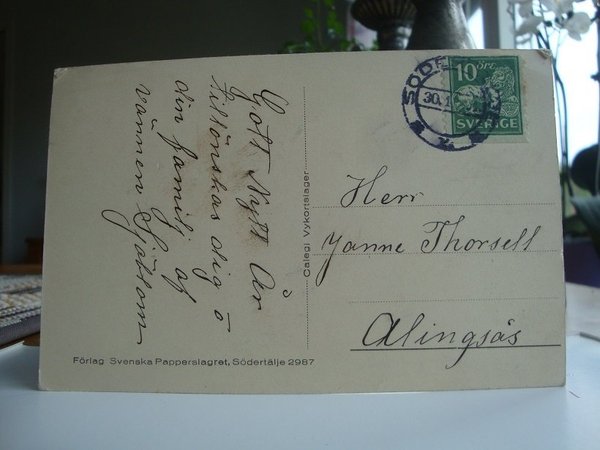 Gott Nytt År
tillönskas dig o
din familj af
vännen Sjöblom
Calegi Vykortslager
10 ÖRE
SVERIGE
SÖDE
30.1
Herr
Janne Thorsell
Alingsås
Förlag Svenska Papperslagret, Södertälje 2987